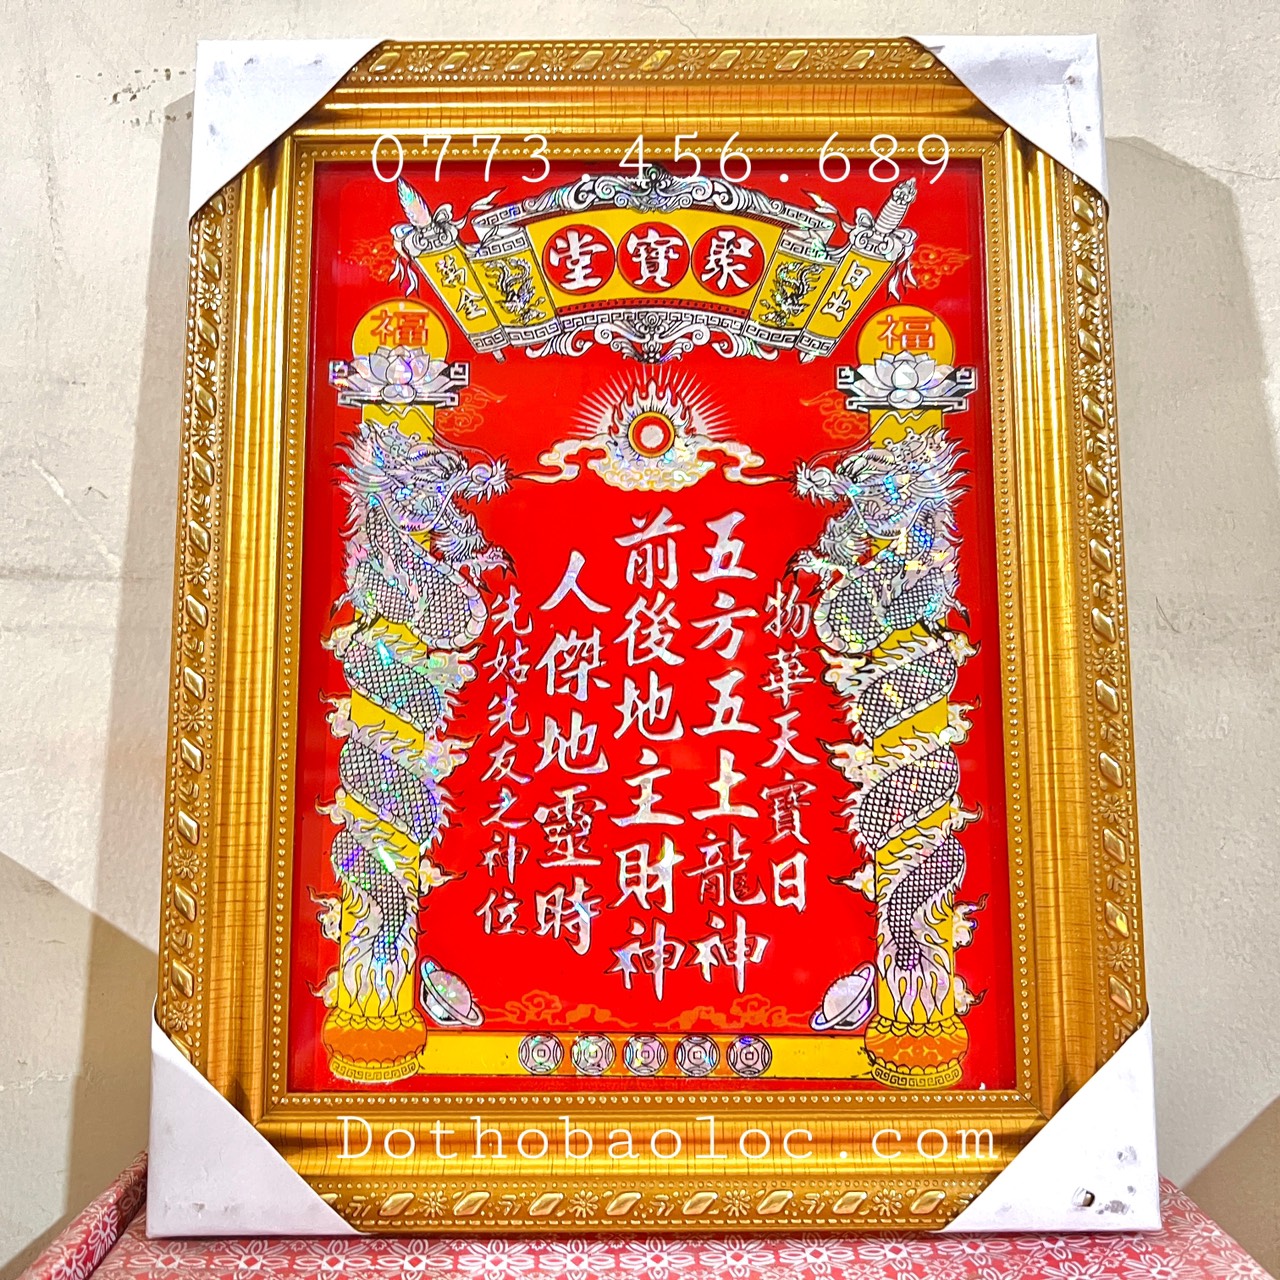 0773.456.689
聚寶堂
日出
萬金
福
福
物華天寶日
五方五土龍神
前後地主財神
人傑地靈時
先姑先友之神位
Dothobaoloc.com